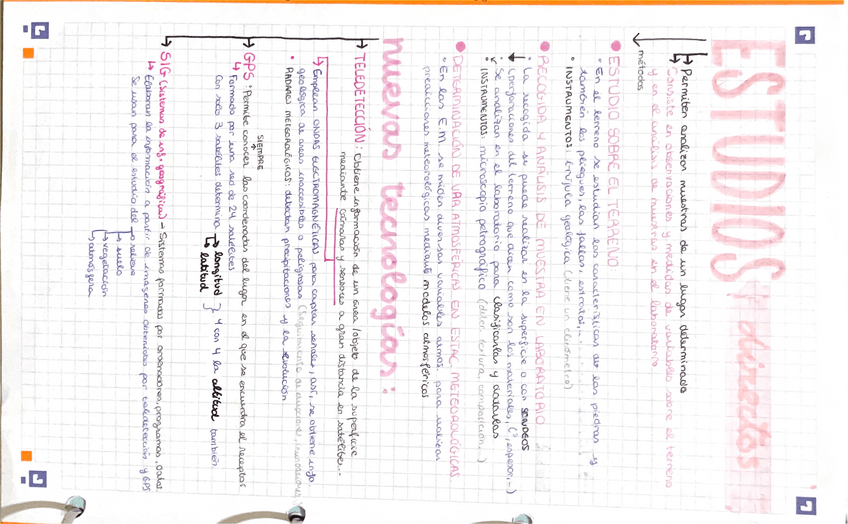 ESTUDIOS directos
→ Permiten analizar muestras de un lugar determinado
↳ Consiste en observaciones y medidas de variables sobre el terreno
y en el análisis de muestras en el laboratorio
métodos
• ESTUDIO SOBRE EL TERRENO
* En el terreno se estudian las características de las piedras y
también los pliegues, las fallas, estratos,...
* INSTRUMENTOS: brújula geológica (tiene un clinómetro)
• RECOGIDA Y ANÁLISIS DE MUESTRA EN LABORATORIO
* La recogida se puede realizar en la superficie o con SONDEOS
(perforaciones del terreno que dicen como son los materiales,
* Se analizan en el laboratorio para clasificarlas y datarlas
* INSTRUMENTOS: microscopio petrográfico (textura, composición...)
• DETERMINACIÓN DE VAR. ATMOSFÉRICAS EN ESTAC. METEOROLÓGICAS
* En las E.M. se miden diversas variables atmos. para realizar
predicciones meteorológicas mediante modelos atmosféricos
nuevas tecnologías:
→ TELEDETECCIÓN: Obtiene información de un área/objeto de la superficie
mediante cámaras y sensores a gran distancia en satélites..
↳ Emplean ONDAS ELECTROMAGNÉTICAS para captar señales, así, se obtiene info.
geológica de áreas inaccesibles o peligrosas (seguimiento de erupciones, inundaciones
• RADARES METEOROLÓGICOS: detectan precipitaciones y la evolución
SIEMPRE
→ GPS * Permite conocer las coordenadas del lugar en el que se encuentra el receptor
↳ Formado por una red de 24 satélites
Con solo 3 satélites determina → longitud
↳ latitud } Y con 4 la altitud también
→ SIG (Sistemas de inf. geográfica) - Sistemas formados por ordenadores, programas, datos
↳ Elaboran la información a partir de imágenes obtenidas por teledetección y GPS
Se usan para el estudio del → relieve
→ suelo
→ vegetación
→ atmósfera